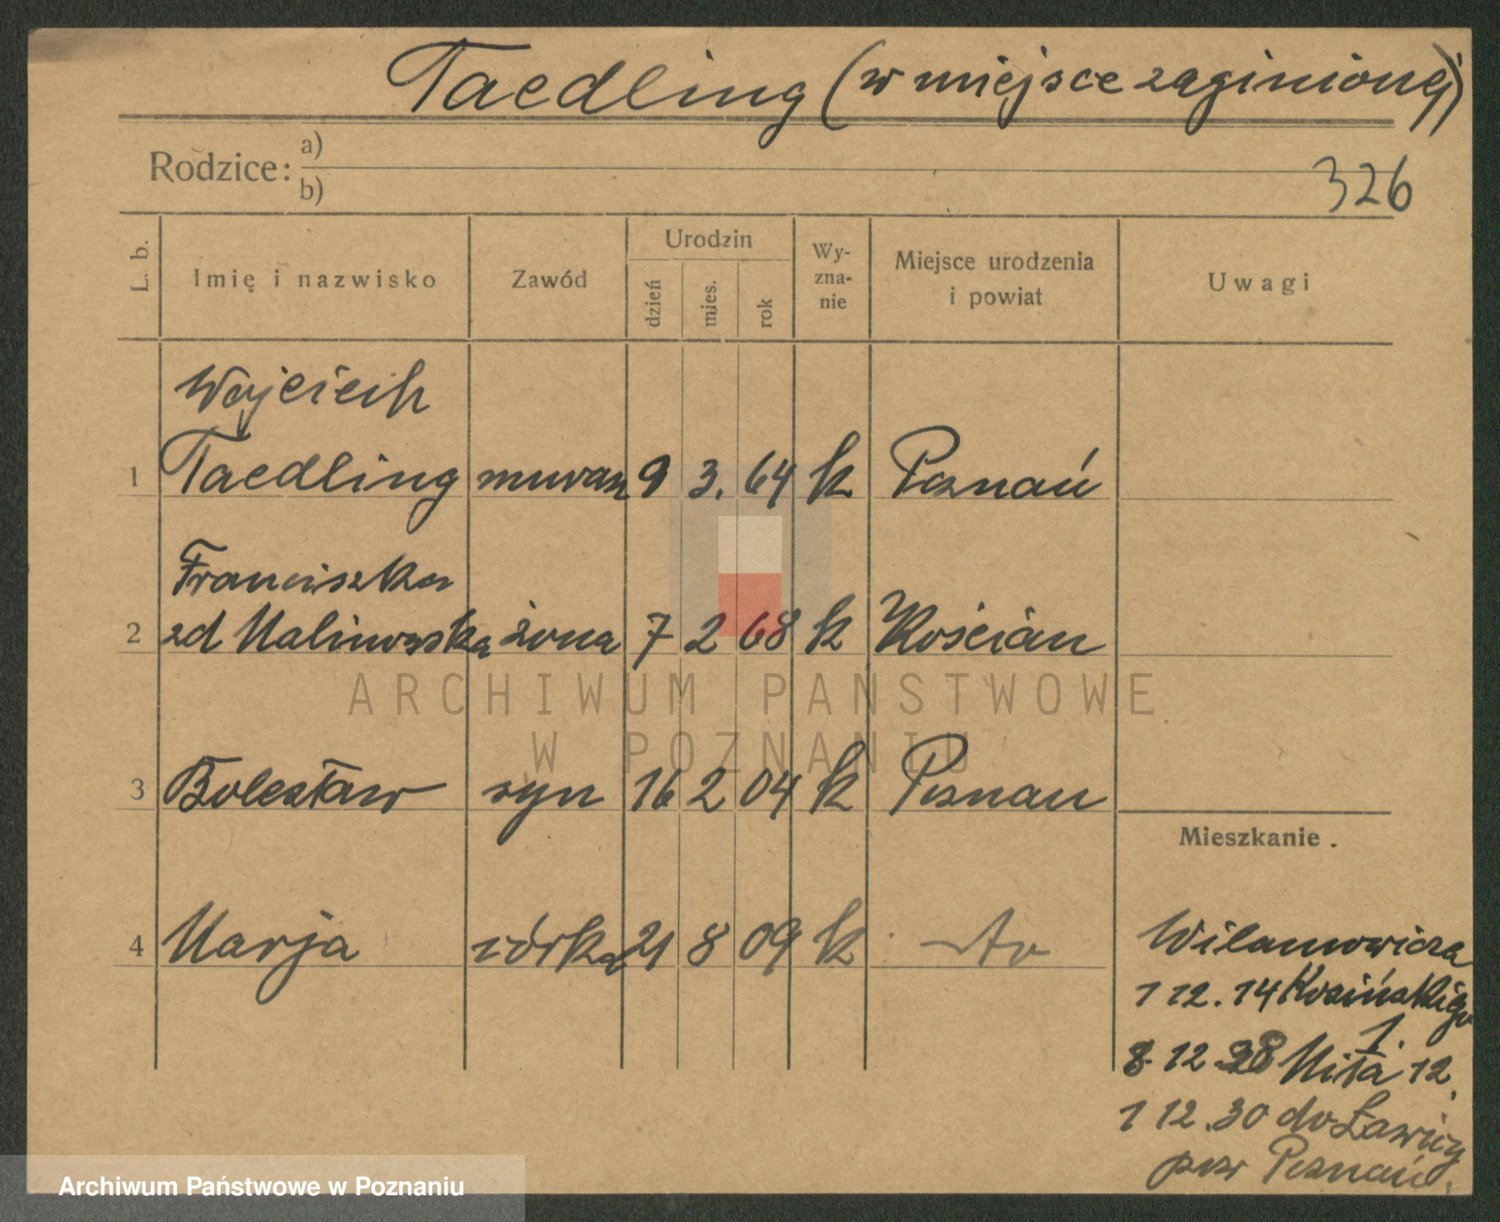 Taedling (w miejsce zaginionej)
Rodzice: a)
b)
326
L. b.
Imię i nazwisko
Zawód
Urodzin
dzień
mies.
rok
Wy-
zna-
nie
Miejsce urodzenia
i powiat
Uwagi
Wojciech
1 Taedling murarz 9 3. 64 k Poznań
Franciszka
2 zd Malinowska żona 7 2 68 k Kościan
3 Bolesław syn 16 2 04 k Poznań
4 Marja córka 21 8 09 k
Mieszkanie.
Wilamowicza
1 12. 14 Kosińskiego
1.
8 12 28 Miła 12.
1 12. 30 do Ławicy
pow Poznań.
ARCHIWUM PAŃSTWOWE
W POZNANIU
Archiwum Państwowe w Poznaniu